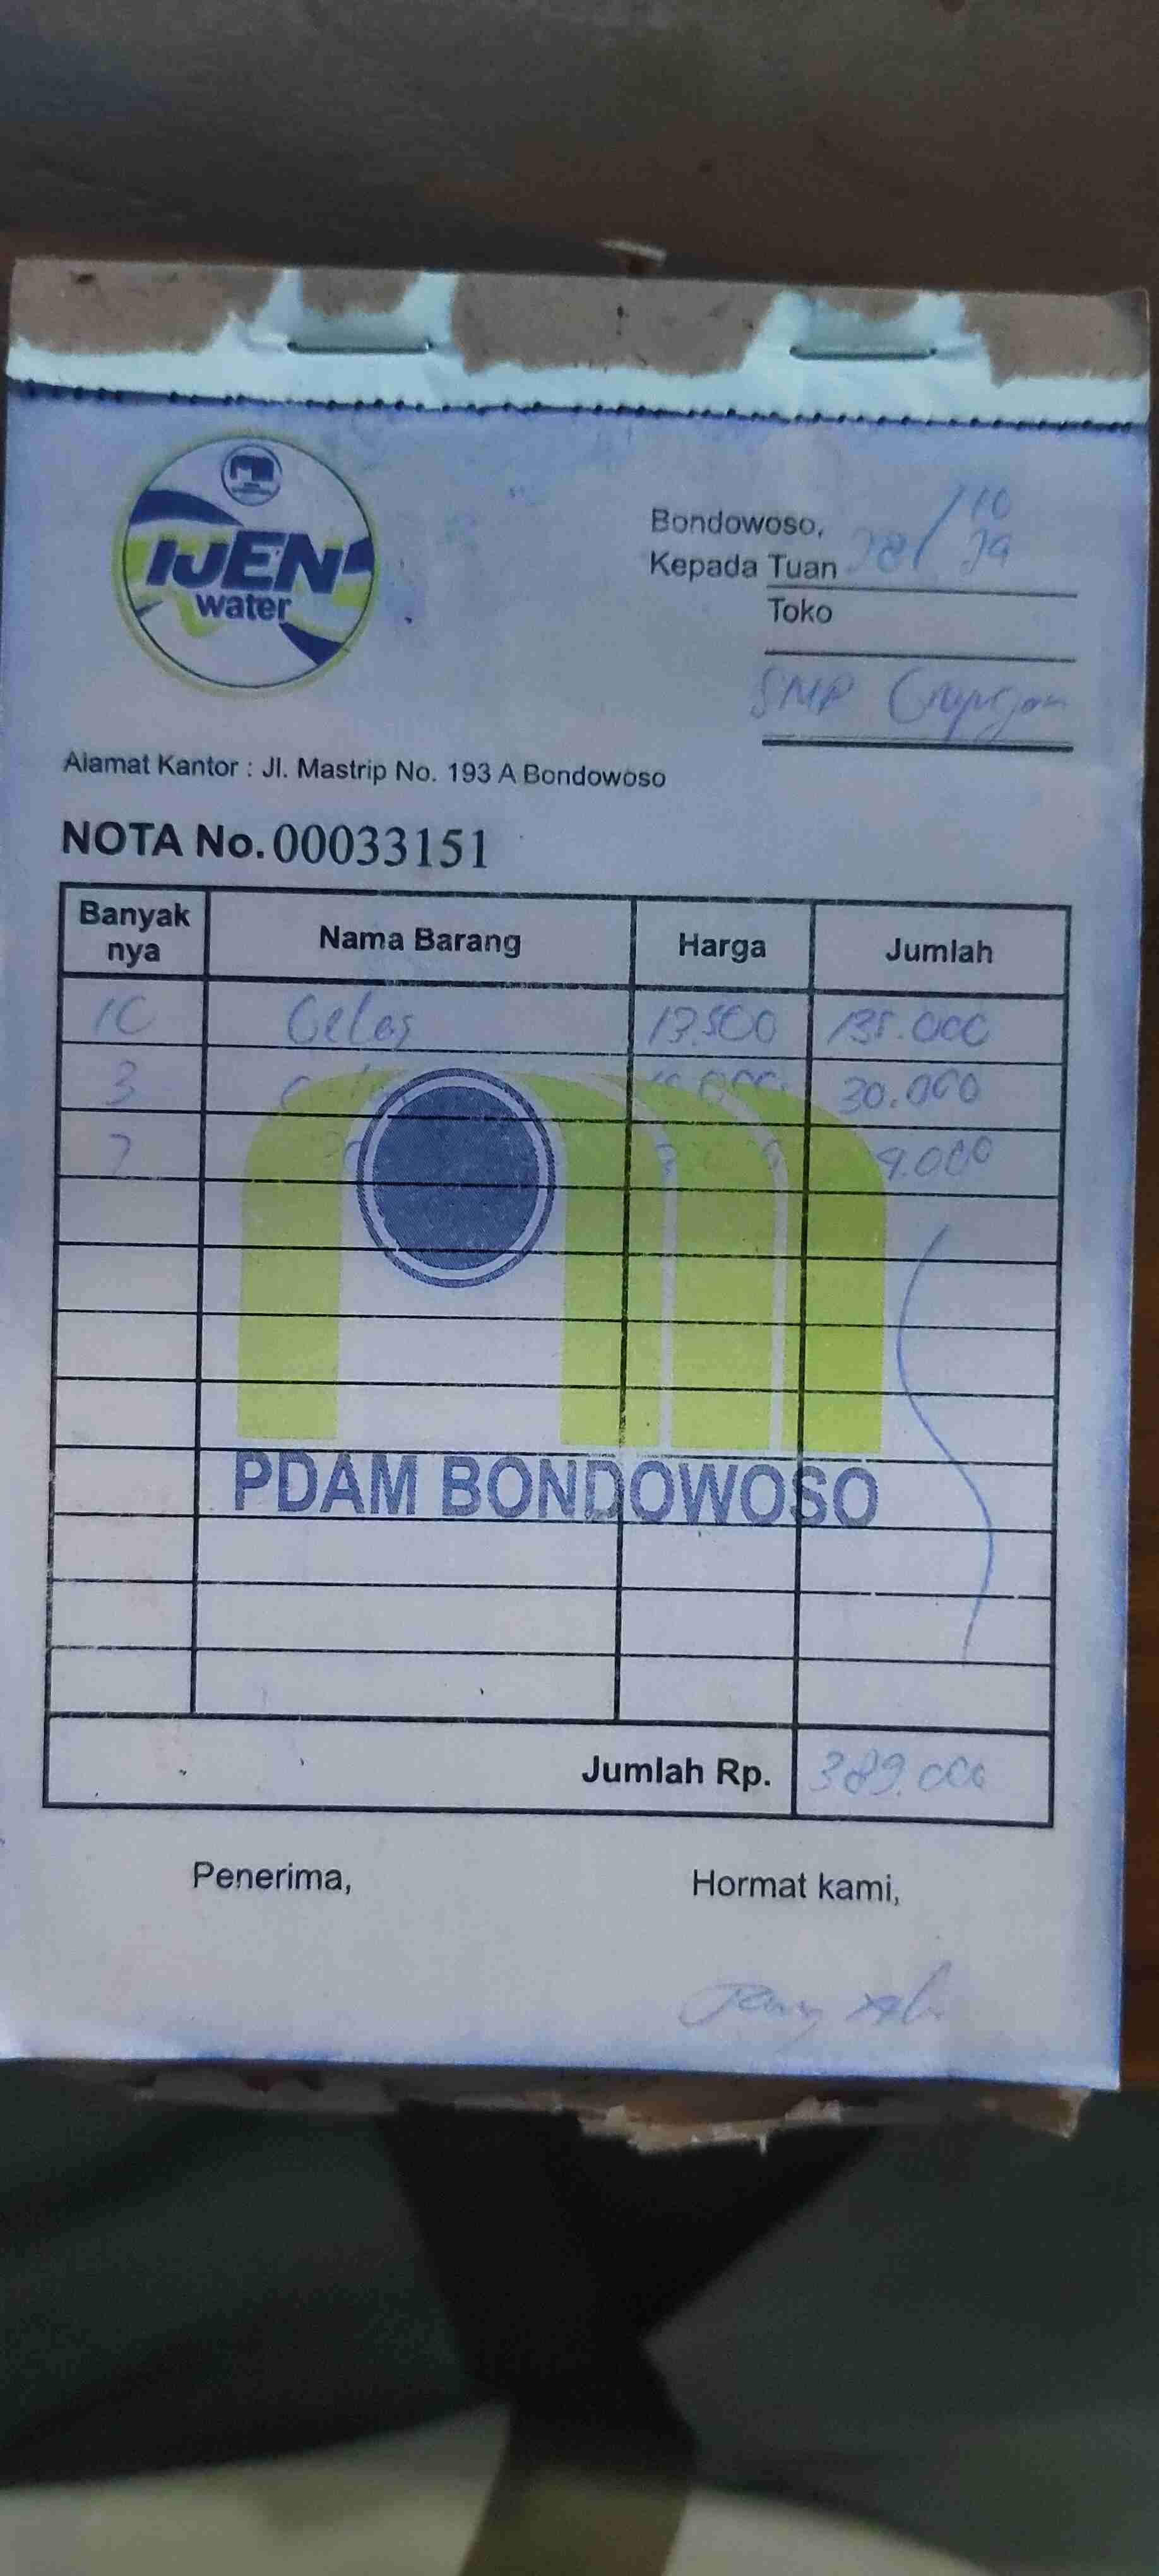 IJEN
water
Bondowoso, 28/10
Kepada Tuan
Toko
SMP
Alamat Kantor : Jl. Mastrip No. 193 A Bondowoso
NOTA No. 00033151
Banyak nya Nama Barang Harga Jumlah
10 Gelas 13.500 135.000
3 30.000
9.000
PDAM BONDOWOSO
Jumlah Rp. 389.000
Penerima, Hormat kami,